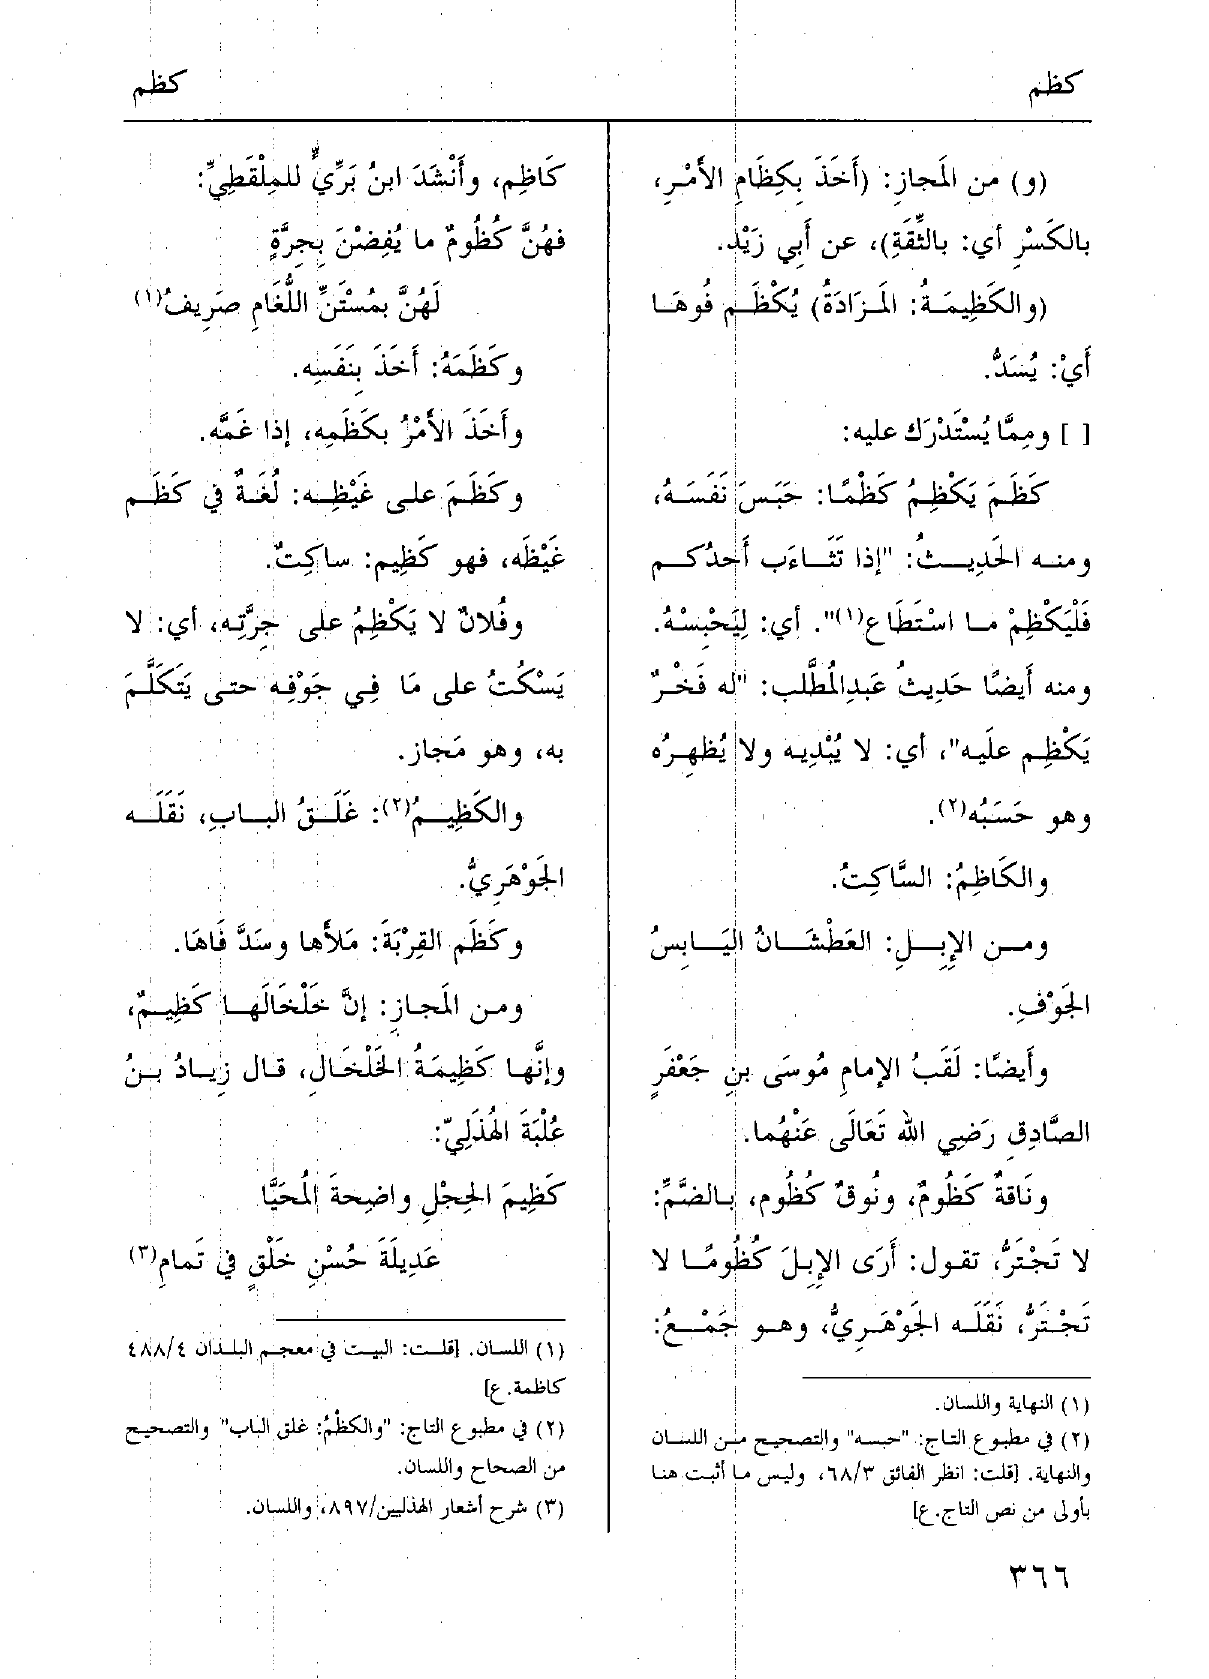 كظم
كظم
(و) من المَجازِ: (أَخَذَ بِكِظَامِ الأَمْرِ،
بالكَسْرِ أي: بالثِّقَةِ)، عن أَبِي زَيْد.
(والكَظِيمَةُ: المَزَادَةُ) يُكْظَم فُوهَا
أَيْ: يُسَدُّ.
[ ] ومِمَّا يُسْتَدْرَك عليه:
كَظَمَ يَكْظِمُ كَظْمًا: حَبَسَ نَفَسَهُ،
ومنه الحَدِيثُ: "إذا تَثَاءَب أَحدُكم
فَلْيَكْظِمْ ما اسْتَطَاع(١)". أي: لِيَحْبِسْهُ.
ومنه أَيضًا حَدِيثُ عَبدِالمُطَّلب: "له فَخْرٌ
يَكْظِم علَيه"، أي: لا يُبْدِيه ولا يُظهِرُه
وهو حَسَبُه(٢).
والكَاظِمُ: السَّاكِتُ.
ومن الإِبِلِ: العَطْشَانُ اليَابِسُ
الجَوْفِ.
وأَيضًا: لَقَبُ الإمامِ مُوسَى بنِ جَعْفَرٍ
الصَّادِقِ رَضِي الله تَعَالَى عَنْهُما.
ونَاقةٌ كَظُومٌ، ونُوقٌ كُظُوم، بالضَّمِّ:
لا تَجْتَرُّ، تقول: أَرَى الإِبِلَ كُظُومًا لا
تَجْتَرُّ، نَقَلَه الجَوْهَرِيُّ، وهو جَمْعُ:
(١) النهاية واللسان.
(٢) في مطبوع التاج: "حبسه" والتصحيح من اللسان
والنهاية. [قلت: انظر الفائق ٦٨/٣، وليس ما أثبت هنا
بأولى من نص التاج.ع]
كَاظِم، وأَنْشَدَ ابنُ بَرِّيٍّ للمِلْقَطِيِّ:
فهُنَّ كُظُومٌ ما يُفِضْنَ بِجِرَّةٍ
لَهُنَّ بمُسْتَنِّ اللُّغَامِ صَرِيفُ(١)
وكَظَمَهُ: أَخَذَ بِنَفَسِه.
وأَخَذَ الأَمْرُ بكَظَمِه، إذا غَمَّه.
وكَظَمَ على غَيْظِه: لُغَةٌ في كَظَم
غَيْظَه، فهو كَظِيم: ساكِتٌ.
وفُلانٌ لا يَكْظِمُ على جِرَّتِه، أي: لا
يَسْكُتُ على مَا فِي جَوْفِه حتى يَتَكَلَّمَ
به، وهو مَجاز.
والكَظِيمُ(٢): غَلَقُ البابِ، نَقَلَه
الجَوْهَرِيُّ.
وكَظَم القِرْبَةَ: مَلأَها وسَدَّ فَاهَا.
ومن المَجازِ: إنَّ خَلْخَالَها كَظِيمٌ،
وإنَّها كَظِيمَةُ الخَلْخَالِ، قال زِيادُ بنُ
عُلْبَةَ الهُذَلِيّ:
كَظِيمَ الحِجْلِ واضِحةَ المُحَيَّا
عَدِيلَةَ حُسْنِ خَلْقٍ في تَمامِ(٣)
(١) اللسان. [قلت: البيت في معجم البلدان ٤٨٨/٤
كاظمة.ع]
(٢) في مطبوع التاج: "والكظْمُ: غلق الباب" والتصحيح
من الصحاح واللسان.
(٣) شرح أشعار الهذليين/٨٩٧، واللسان.
٣٦٦